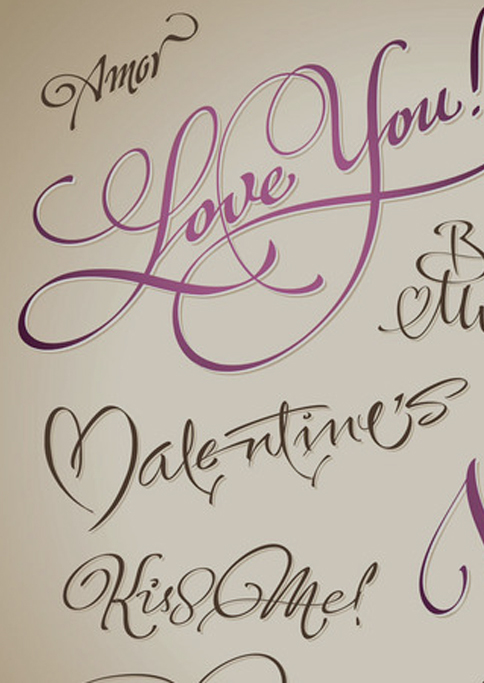 Amor
Love You!
Valentine's
Kiss Me!